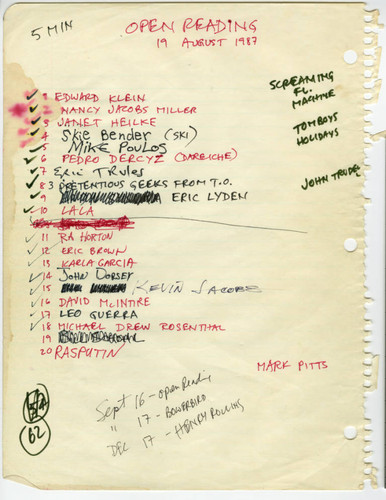 5 MIN
OPEN READING
19 AUGUST 1987
2 EDWARD KLEIN
NANCY JACOBS MILLER
3 JANET HEILKE
4 Skie Bender (SKI)
5 Mike Poulos
6 PEDRO DERCYZ (DAREICHE)
7 Eric Trules
8 3 PRETENTIOUS GEEKS FROM T.O.
9 ERIC LYDEN
10 LALA
11 RA HORTON
12 ERIC BROWN
13 KARLA GARCIA
14 JOHN DORSEY
15 KEVIN JACOBS
16 DAVID McINTIRE
17 LEO GUERRA
18 MICHAEL DREW ROSENTHAL
19
20 RASPUTIN
SCREAMING
FL.
MACHINE
TOMBOYS
HOLIDAYS
JOHN TRUDEL
MARK PITTS
Sept 16 - open Reading
" 17 - BOWERBIRD
DEC 17 - HENRY ROLLINS
62